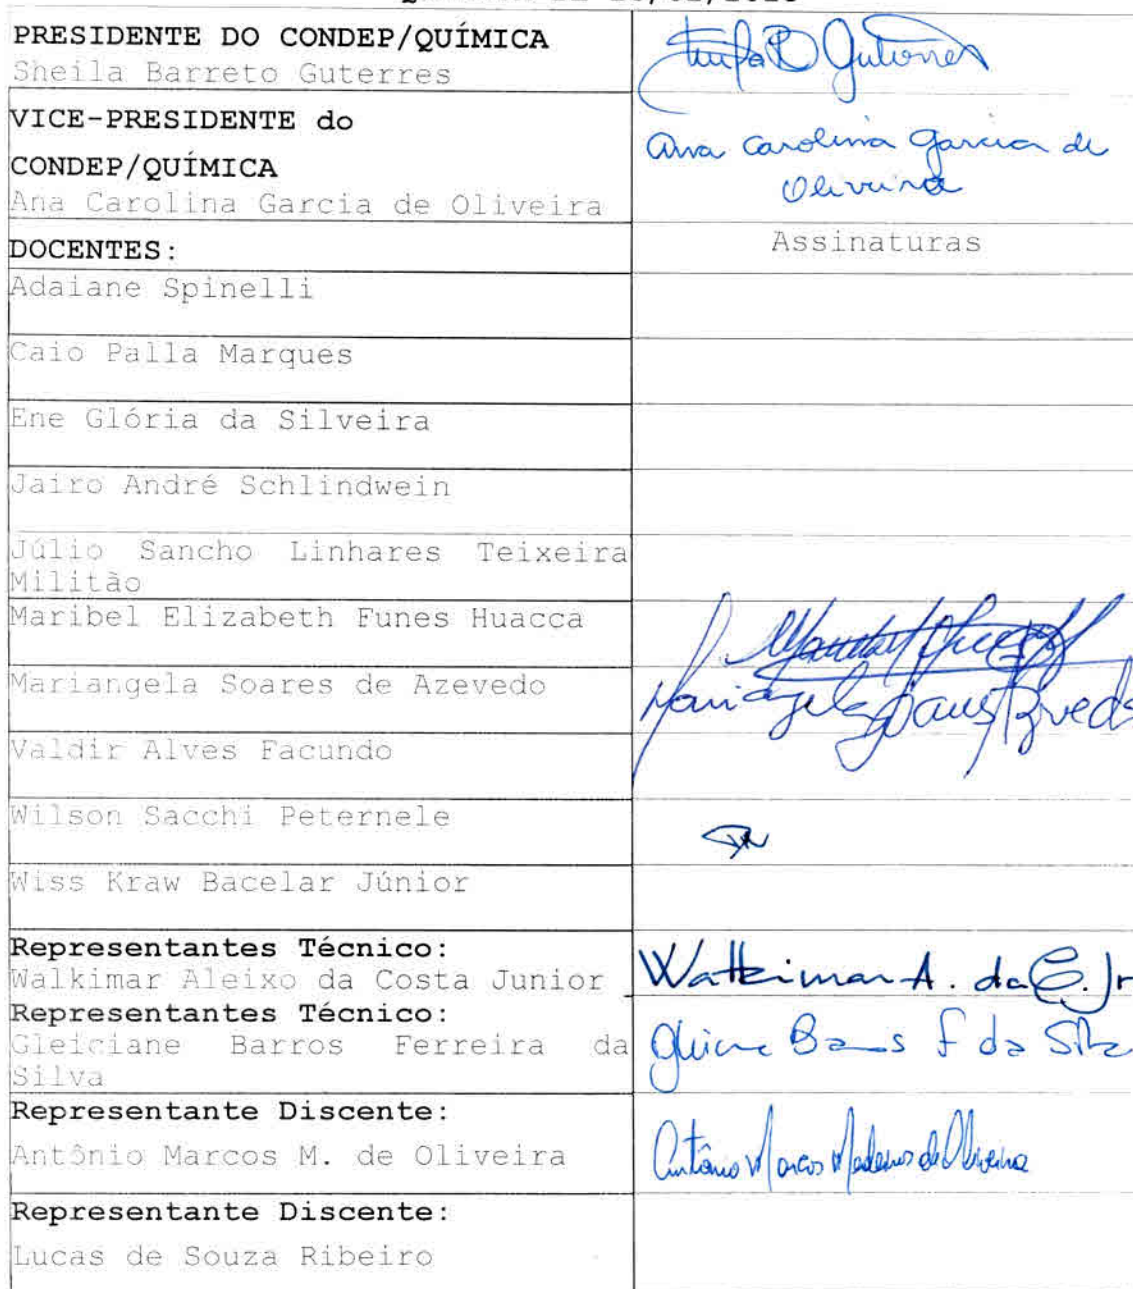 PRESIDENTE DO CONDEP/QUÍMICA
Sheila Barreto Guterres
VICE-PRESIDENTE do
CONDEP/QUÍMICA
Ana Carolina Garcia de Oliveira
Ana Carolina Garcia de
Oliveira
DOCENTES:
Assinaturas
Adaiane Spinelli
Caio Palla Marques
Ene Glória da Silveira
Jairo André Schlindwein
Júlio Sancho Linhares Teixeira
Militão
Maribel Elizabeth Funes Huacca
Mariangela Soares de Azevedo
Mariangela Soares Azevedo
Valdir Alves Facundo
Wilson Sacchi Peternele
Wiss Kraw Bacelar Júnior
Representantes Técnico:
Walkimar Aleixo da Costa Junior
Walkimar A. da C. Jr
Representantes Técnico:
Gleiciane Barros Ferreira da
Silva
Representante Discente:
Antônio Marcos M. de Oliveira
Antônio Marcos Medeiros de Oliveira
Representante Discente:
Lucas de Souza Ribeiro